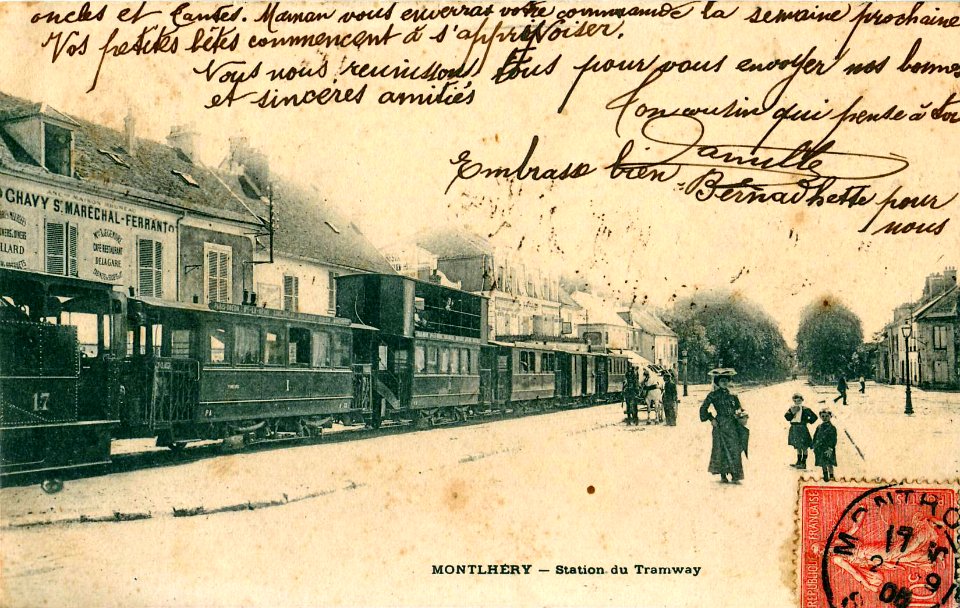 oncles et Tantes. Maman vous enverras votre commande la semaine prochaine
Vos petites bêtes commencent à s'apprivoiser.
Nous nous reunissons tous pour vous envoyer nos bonnes
et sincères amitiés
Ton cousin qui pense à toi
Camille
Embrasse bien Bernadhette pour
nous
CHAVY Sr MARÉCHAL-FERRANT
CAFÉ-RESTAURANT
DE LA GARE
17
1
MONTLHÉRY — Station du Tramway
RÉPUBLIQUE FRANÇAISE
17